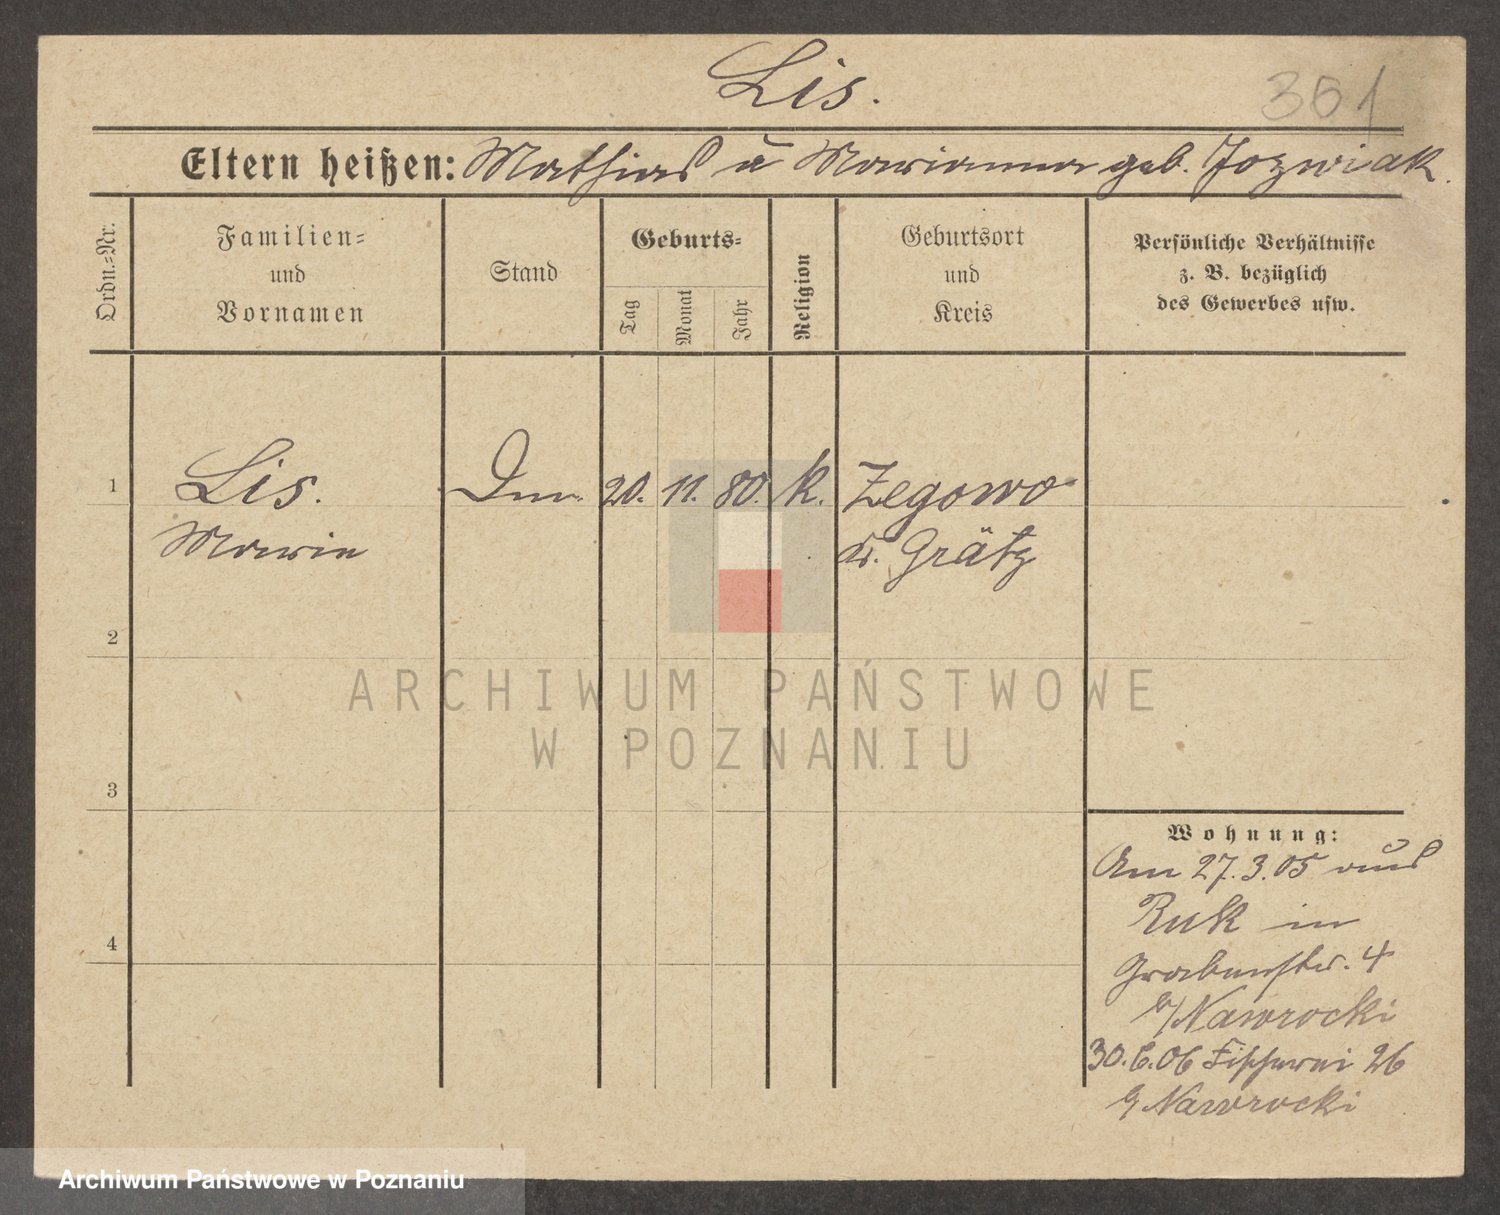 Lis.
361
Eltern heißen: Mathias u Marianna geb. Jozwiak.
Ordn.=Nr.
Familien=
und
Vornamen
Stand
Geburts=
Tag
Monat
Jahr
Religion
Geburtsort
und
Kreis
Persönliche Verhältnisse
z. B. bezüglich
des Gewerbes usw.
1
Lis. 20. 11. 80. k. Zegowo
Marie Kr. Grätz
2
ARCHIWUM PAŃSTWOWE
W POZNANIU
3
4
Wohnung:
Am 27.3.05 aus
Buk in
Grabenstr. 4
b/Nawrocki
30.6.06 Fischerei 26
b/Nawrocki
Archiwum Państwowe w Poznaniu